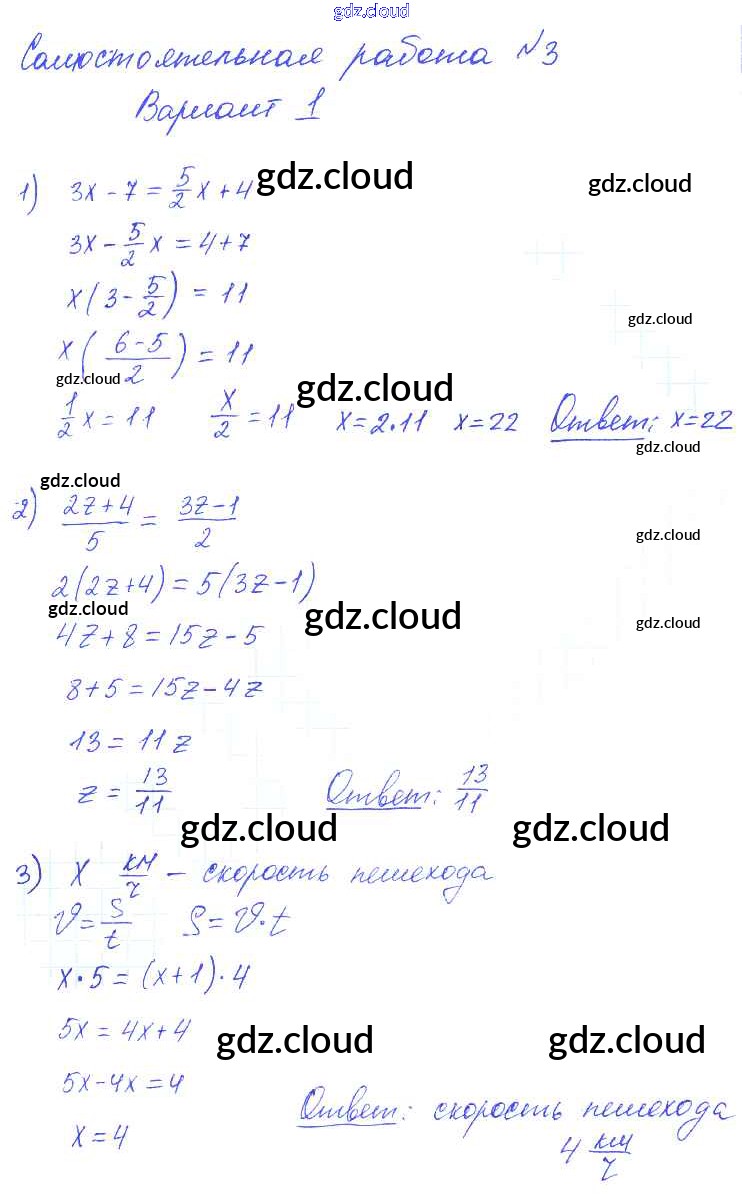 gdz.cloud
Самостоятельная работа №3
Вариант 1
1) 3x - 7 = 5/2 x + 4
gdz.cloud gdz.cloud
3x - 5/2 x = 4 + 7
x(3 - 5/2) = 11
gdz.cloud
x((6-5)/2) = 11
gdz.cloud gdz.cloud
1/2 x = 11 x/2 = 11 x = 2·11 x = 22 Ответ: x = 22
gdz.cloud
gdz.cloud
2) (2z+4)/5 = (3z-1)/2
gdz.cloud
2(2z+4) = 5(3z-1)
gdz.cloud gdz.cloud gdz.cloud
4z + 8 = 15z - 5
8 + 5 = 15z - 4z
13 = 11z
z = 13/11 Ответ: 13/11
gdz.cloud gdz.cloud
3) x км/ч - скорость пешехода
v = S/t S = v·t
x·5 = (x+1)·4
5x = 4x + 4
gdz.cloud gdz.cloud
5x - 4x = 4
x = 4 Ответ: скорость пешехода
4 км/ч